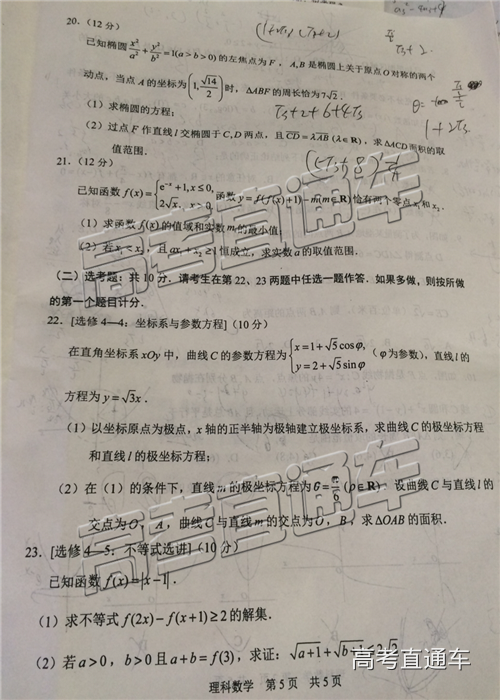 20.(12分)
已知椭圆 x²/a² + y²/b² = 1(a > b > 0) 的左焦点为 F, A,B 是椭圆上关于原点 O 对称的两个
动点, 当点 A 的坐标为 (1, √14/2) 时, △ABF 的周长恰为 7√2.
(1) 求椭圆的方程;
(2) 过点 F 作直线 l 交椭圆于 C,D 两点, 且 CD = λAB (λ∈R), 求 △ACD 面积的取
值范围.
21.(12分)
已知函数 f(x) = { e⁻ˣ+1, x≤0, 2√x, x>0, 函数 y = f(f(x)+1)−m(m∈R) 恰有两个零点 x₁ 和 x₂.
(1) 求函数 f(x) 的值域和实数 m 的最小值;
(2) 若 x₁ < x₂, 且 ax₁+x₂≥1 恒成立, 求实数 a 的取值范围.
(二) 选考题: 共10分. 请考生在第 22、23 两题中任选一题作答. 如果多做, 则按所做
的第一个题目计分.
22. [选修 4—4: 坐标系与参数方程] (10分)
在直角坐标系 xOy 中, 曲线 C 的参数方程为 { x=1+√5cosφ, y=2+√5sinφ (φ为参数), 直线 l 的
方程为 y=√3x.
(1) 以坐标原点为极点, x 轴的正半轴为极轴建立极坐标系, 求曲线 C 的极坐标方程
和直线 l 的极坐标方程;
(2) 在 (1) 的条件下, 直线 m 的极坐标方程为 θ=π/6 (ρ∈R), 设曲线 C 与直线 l 的
交点为 O, A, 曲线 C 与直线 m 的交点为 O, B, 求 △OAB 的面积.
23. [选修 4—5: 不等式选讲] (10分)
已知函数 f(x)=|x−1|.
(1) 求不等式 f(2x)−f(x+1)≥2 的解集.
(2) 若 a>0, b>0 且 a+b=f(3), 求证: √a+1+√b+1≤2√2.
理科数学 第5页 共5页
高考直通车
高考直通车
高考直通车
高考直通车